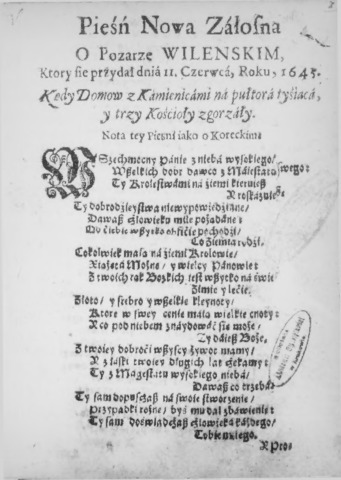 Pieśń Nowa Záłosna
O Pozarze WILENSKIM,
Ktory sie przydał dniá 11. Czerwcá, Roku, 1643.
Kedy Domow z Kámienicámi ná pułtorá tyśiącá,
y trzy Kośćioły zgorzáły.
Nota tey Piesni iáko o Koreckim:
WSzechmocny Pánie z niebá wysokiego/
Wszelkich dobr dawco z Máiestatu swego:
Ty Krolestwámi ná źiemi kieruiesz
Y roskázuiesz.
Ty dobrodzieystwá niewypowiedźiáne/
Dawasz człowieku mile pożądáne:
Od ciebie wszytko obficie pochodźi/
Co Ziemiá rodźi.
Cokolwiek máią ná źiemi Krolowie/
Xiążętá Możne/ y wielcy Pánowie:
Z twoich rąk Bozkich iest wszytko ná świe-
Zimie y lećie.
Złoto/ y srebro y wszelkie kleynoty/
Ktore w swey cenie máią wielkie cnoty:
Y co pod niebem znáydowáć się może/
Ty dáiesz Boże.
Z twoiey dobroći wszyscy żywot mamy/
Y z łáski twoiey długich lat czekamy:
Ty z Mágestatu wysokiego niebá/
Dawasz co trzebá.
Ty sam dopuszczasz ná swoie stworzenie/
Przypadki rożne/ byś mu dał zbáwienie:
Ty sam doświádczasz człowieká káżdego/
Tobie
Y Pro-